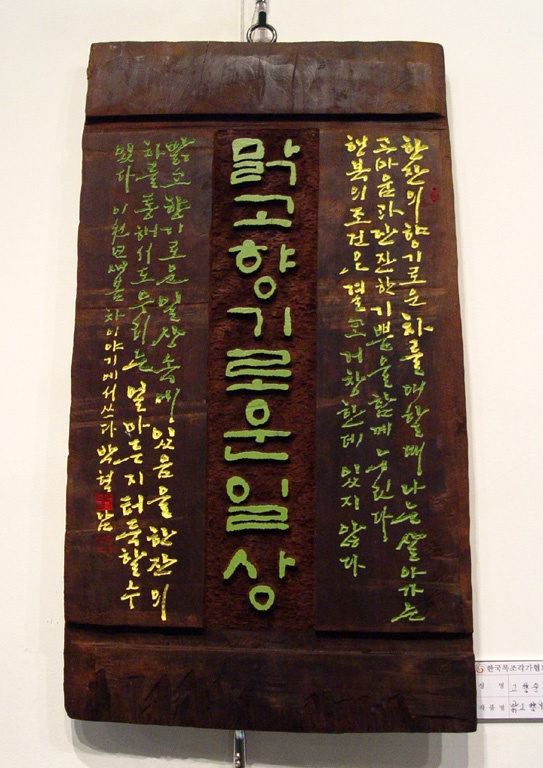 한잔의 향기로운 차를 대할 때 나는 살아가는
고마움과 잔잔한 기쁨을 함께 누린다
행복의 조건은 결코 거창한데 있지 않다
맑고 향기로운 일상
맑고 향기로운 일상 속에 있음을 한잔의
차를 통해서도 우리는 얼마든지 터득할 수
있다 이천 봄 차이야기에서 쓰다 박혁남
한국목조각가협
성 명
작품명 맑고 향기